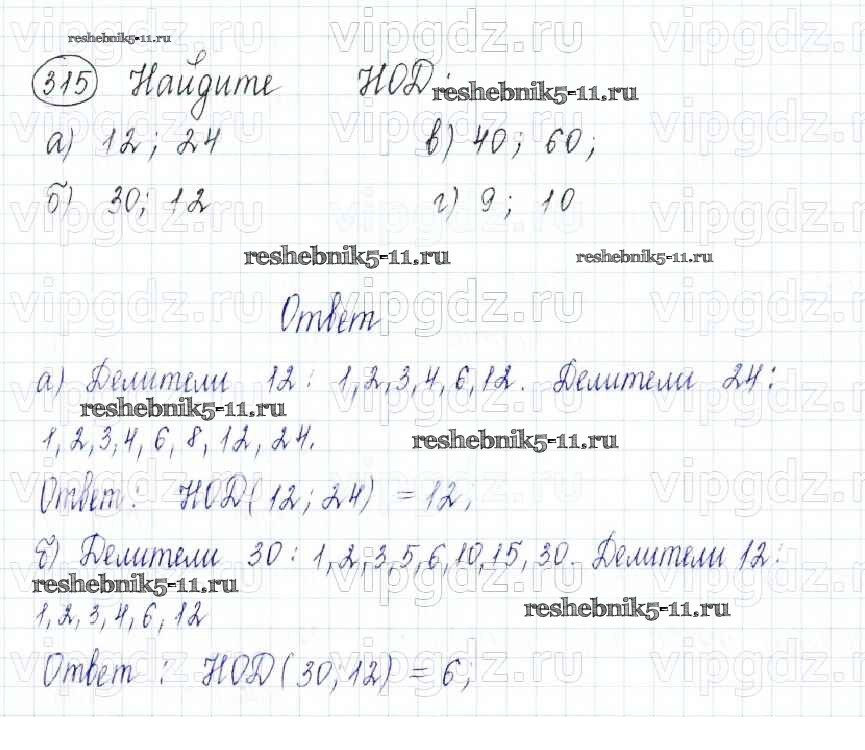 reshebnik5-11.ru
315 Найдите НОД:
reshebnik5-11.ru
а) 12; 24 в) 40; 60;
б) 30; 12 г) 9; 10
reshebnik5-11.ru reshebnik5-11.ru
Ответ
а) Делители 12: 1,2,3,4,6,12. Делители 24:
reshebnik5-11.ru
1,2,3,4,6,8,12,24.
reshebnik5-11.ru
Ответ: НОД(12;24) = 12;
б) Делители 30: 1,2,3,5,6,10,15,30. Делители 12:
reshebnik5-11.ru
1,2,3,4,6,12
reshebnik5-11.ru
Ответ: НОД(30;12) = 6;
vipgdz.ru